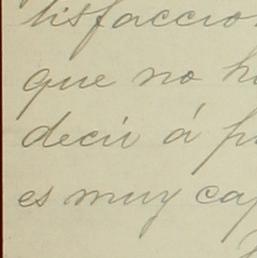 tisfaccio
que no h
decir á p
es muy cap